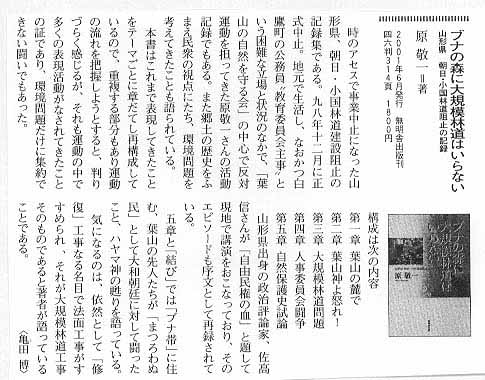 ブナの森に大規模林道はいらない
山形県 朝日・小国林道阻止の記録
原 敬一=著
2001年6月発行 無明舎出版刊
四六判314頁 1800円
時のアセスで事業中止になった山
形県、朝日・小国林道建設阻止の
記録集である。九八年十二月に正
式中止。地元で生活し、なおかつ白
鷹町の公務員“教育委員会主事”と
いう困難な立場と状況のなかで、「葉
山の自然を守る会」の中心で反対
運動を担ってきた原敬一さんの活動
記録でもある。また郷土の歴史をふ
まえ民衆の視点にたち、環境問題を
考えてきたことも語られている。
本書はこれまで表現してきたこと
をテーマごとに章だてし再構成して
いるので、重複する部分もあり運動
の流れを把握しようとすると、判り
づらく感じるが、それも運動の中で
多くの表現活動がなされてきたこと
の証であり、環境問題だけに集約で
きない闘いでもあった。
構成は次の内容
第一章 葉山の麓で
第二章 葉山神よ怒れ!
第三章 大規模林道問題
第四章 人事委員会闘争
第五章 自然保護史試論
山形県出身の政治評論家、佐高
信さんが「自由民権の血」と題して
現地で講演をおこなっており、その
エピソードも序文として再録されて
いる。
五章と「結び」では「ブナ帯」に住
む、葉山の先人たちが「まつろわぬ
民」として大和朝廷に対して闘った
こと、ハヤマ神の甦りを語っている。
気になるのは、依然として「修
復」工事なる名目で法面工事がす
すめられ、それが大規模林道工事
そのものであると著者が語っている
ことである。
〈亀田 博〉
ブナの森に
大規模林道は
いらない
原 敬一